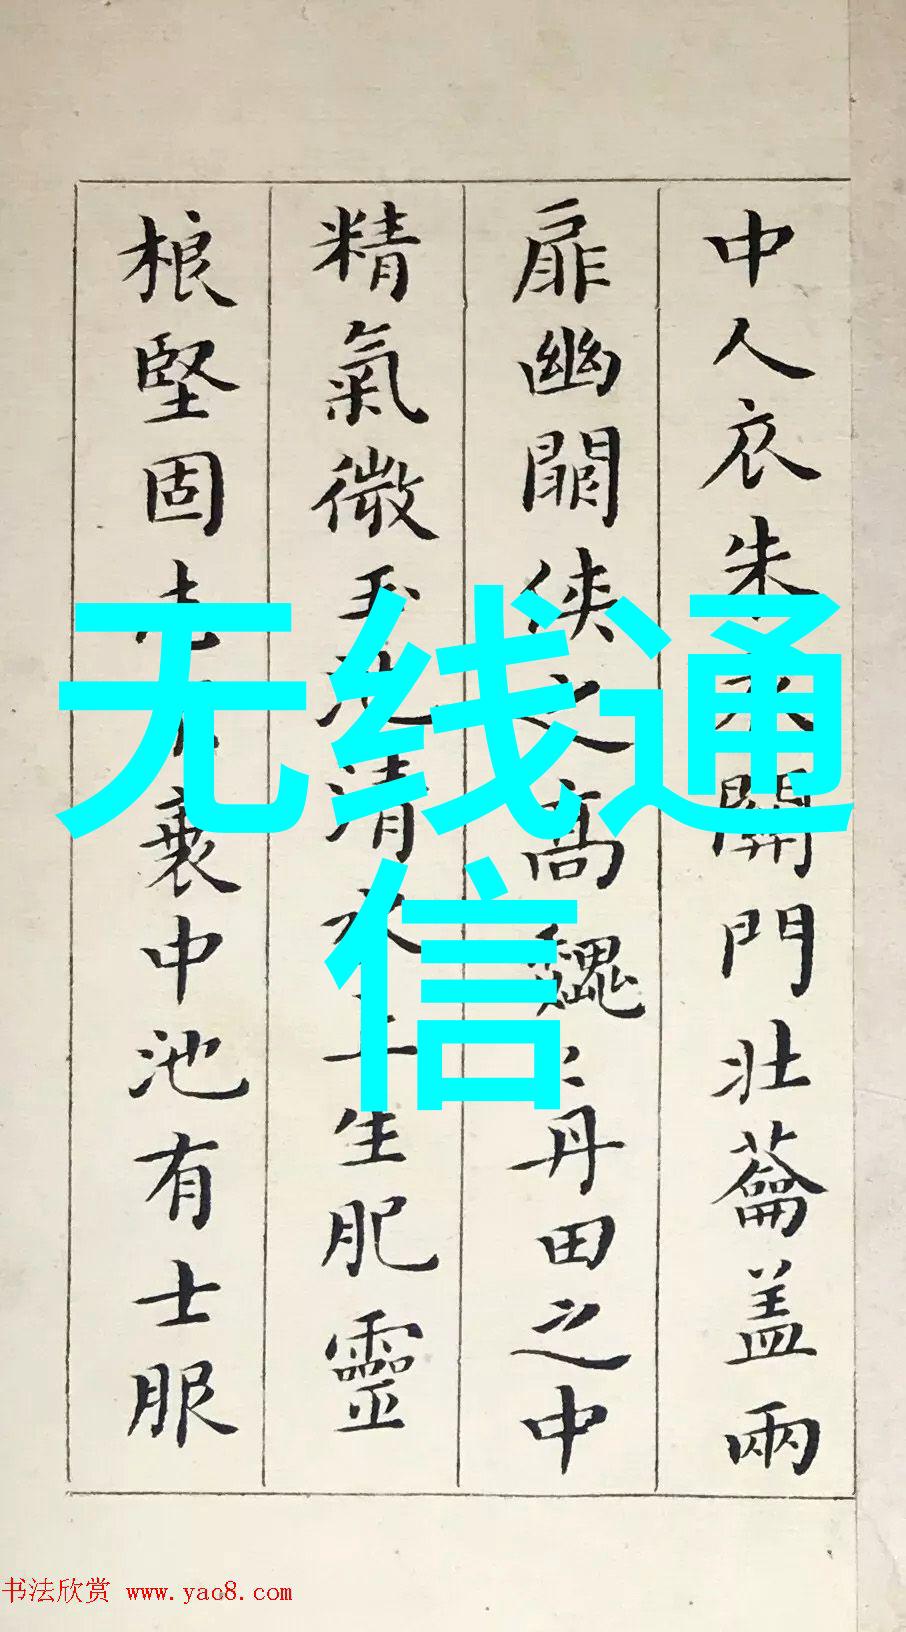 中人衣朱衣關門壯蘥盖兩
扉幽闕俠之高巍〻丹田之中
精氣微玉池清水上生肥靈
根堅固衰中池有士服
无线通
信
书法欣赏 www.yac8.com